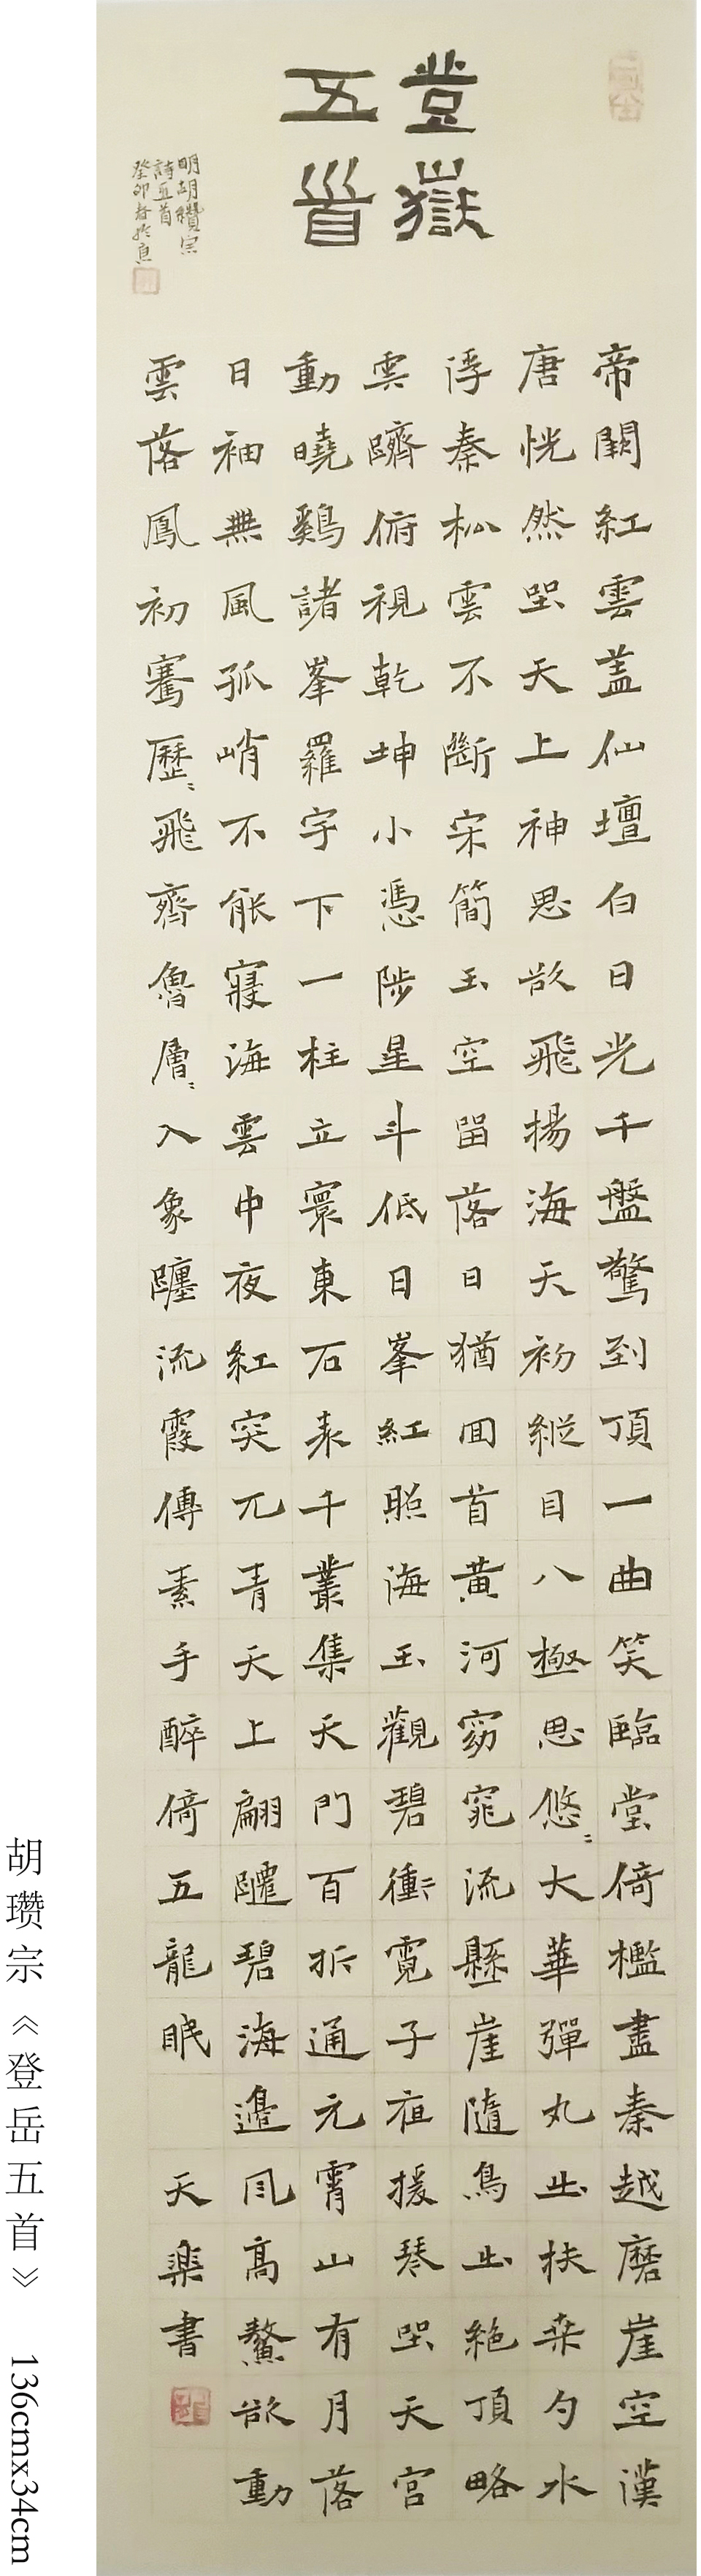 登嶽
五首
帝闕紅雲蓋仙壇白日光千盤驚到頂一曲笑臨堂倚檻盡秦越磨崖空漢
唐恍然坐天上神思欲飛揚海天初縱目八極思悠〻大華彈丸出扶桒勺水
浮秦松雲不斷宋簡玉空留落日猶回首黄河窈窕流懸崖隨鳥出絶頂略
雲隮俯視乾坤小憑陟星斗低日峯紅照海玉觀碧衝〻霓子夜援琴坐天宫
動曉鷄諸峯羅宇下一柱立寰東石表千叢集天門百折通元霄山有月落
日袖無風孤峭不能寢海雲中夜紅突兀青天上翩躚碧海邊風高鰲欲動
雲落鳳初騫歷〻飛齊魯層〻入象躔流霞傳素手醉倚五龍眠
天樂書
明胡纘宗
詩五首
癸卯春於息
胡瓒宗《登岳五首》 136cmx34cm